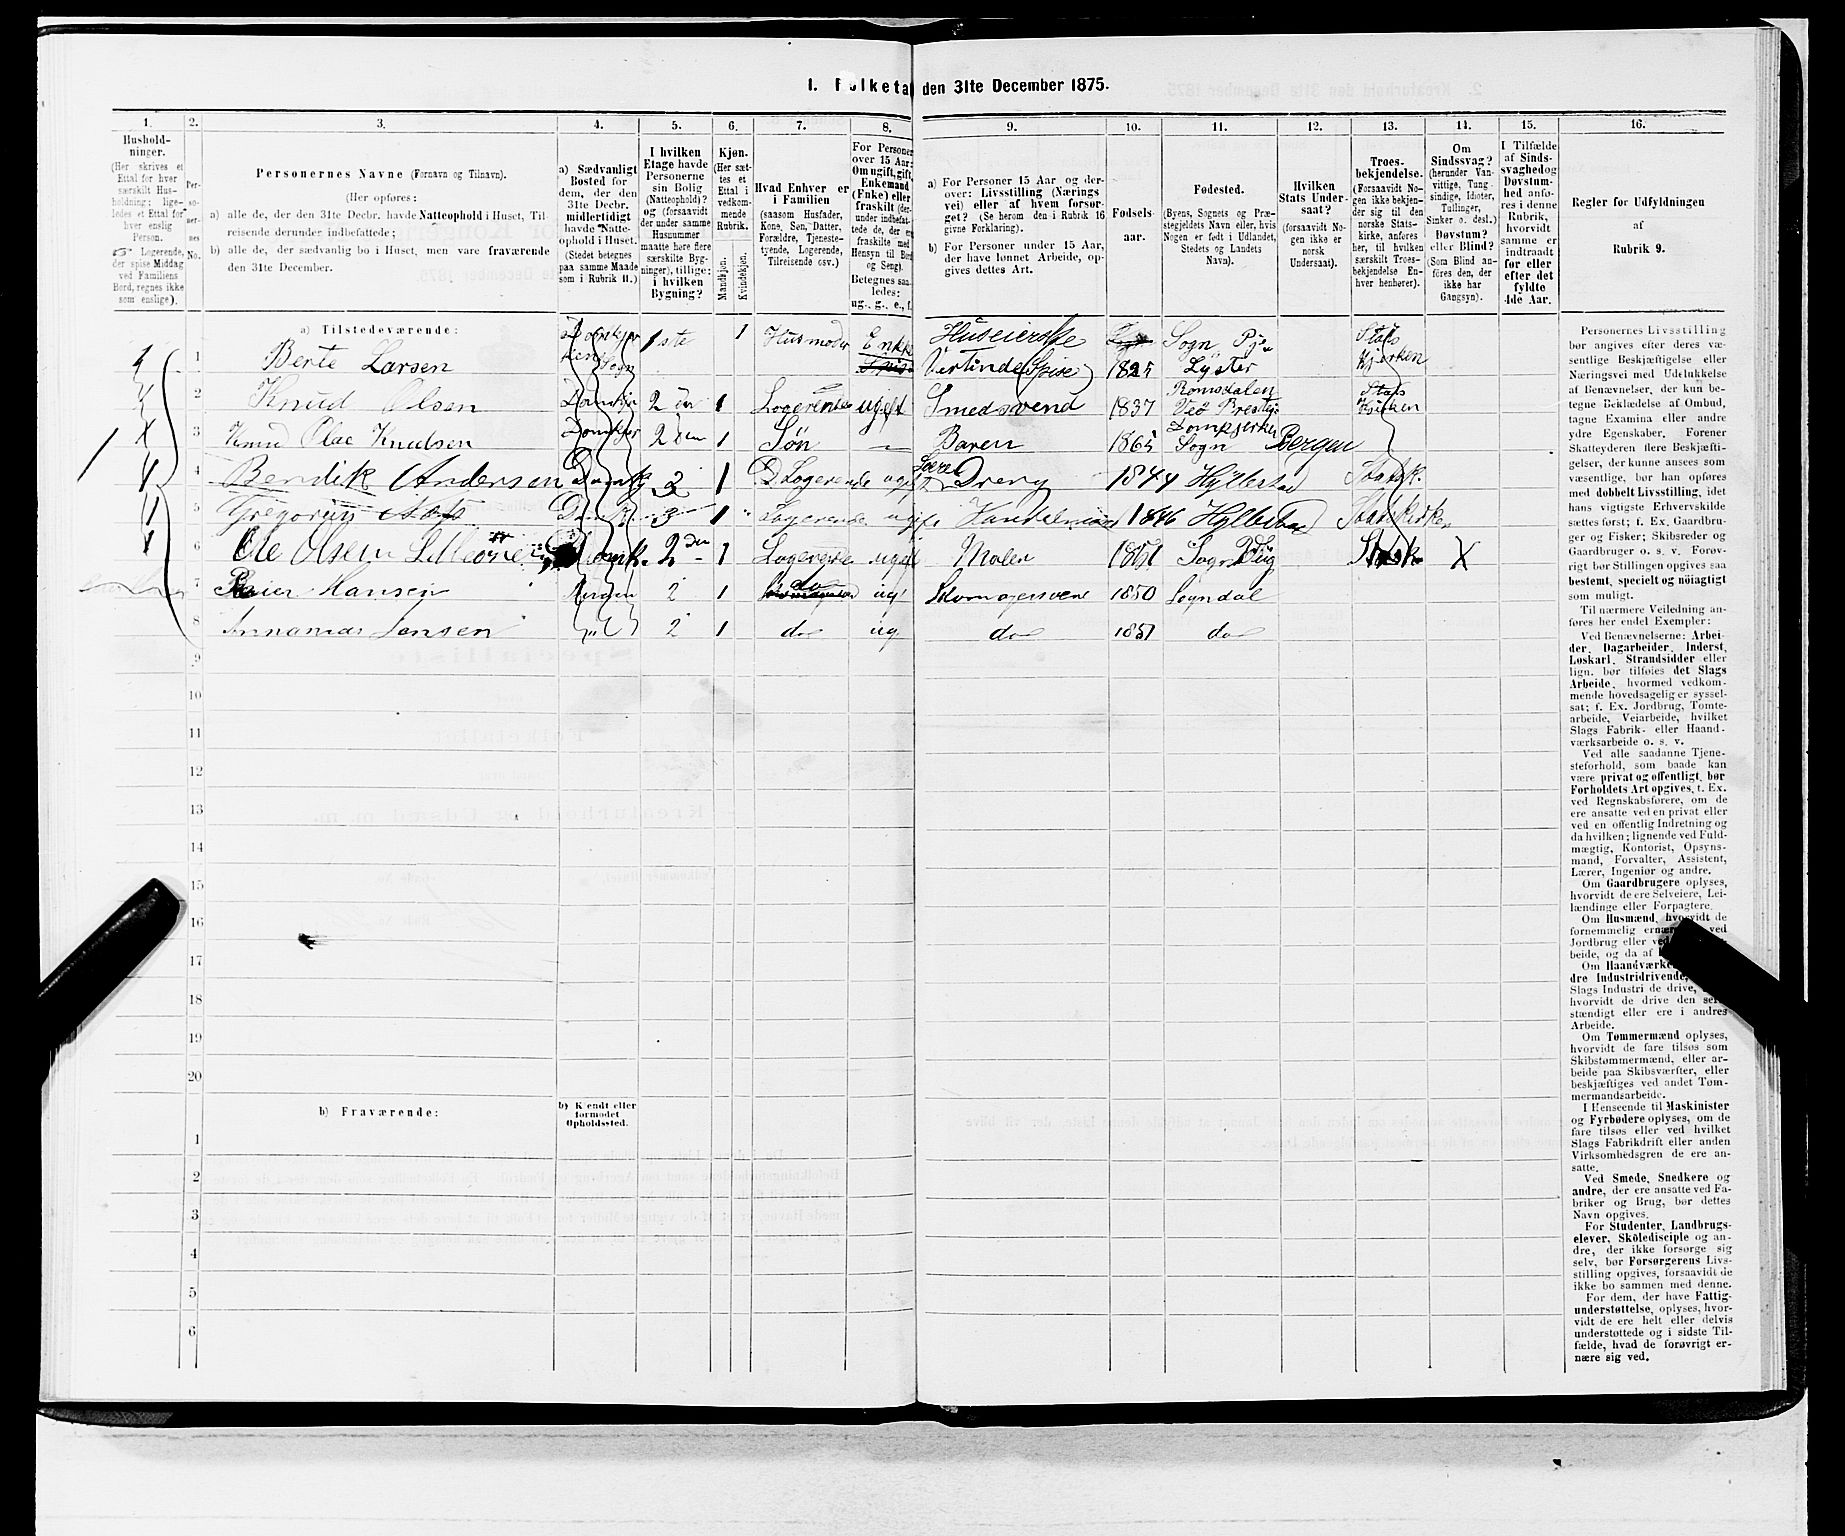 1. Folketal den 31te December 1875.
1.
Hushold-
ninger.
(Her skrives et
Ettal for hver
særskilt Hus-
holdning; lige-
ledes et Ettal for
hver enslig
Person.
Logerende,
der spise Middag
ved Familiens
Bord, regnes ikke
som enslige).
2.
Per-
so-
ner-
nes
No.
3.
Personernes Navne (Fornavn og Tilnavn).
(Her opføres:
a) alle de, der den 31te Decbr. havde Natteophold i Huset, Til-
reisende derunder indbefattede;
b) alle de, der sædvanlig bo i Huset, men vare fraværende
den 31te December.
4.
a) Sædvanligt
Bosted for
dem, der den
31te Decbr.
midlertidigt
havde Natte-
ophold i Huset.
(Stedet betegnes
paa samme Maade
som i Rubrik 11.)
5.
I hvilken
Etage havde
Personerne
sin Bolig
(Natteophold)?
og (forsaavidt
der under samme
Husnummer
maatte høre flere
særskilte Byg-
ninger), tillige:
i hvilken
Bygning?
6.
Kjøn.
(Her sæt-
tes et
Ettal i
vedkom-
mende
Rubrik.
Mandkjøn.
Kvindekjøn.
7.
Hvad Enhver er
i Familien
(saasom Husfader,
Kone, Søn, Datter,
Forældre, Tjeneste-
tyende, Logerende,
Tilreisende osv.)
8.
For Personer
over 15 Aar:
Om ugift, gift,
Enkemand
(Enke) eller
fraskilt (der-
under indbefat-
tede de, der ere
fraskilte med
Hensyn til Bord
og Seng).
Betegnes saa-
ledes:
ug., g., e., f.
9.
a) For Personer 15 Aar og der-
over: Livsstilling (Nærings
vei) eller af hvem forsør-
get? (Se herom den i Rubrik 16
givne Forklaring).
b) For Personer under 15 Aar,
der have lønnet Arbeide, op-
gives dettes Art.
10.
Fødsels-
aar.
11.
Fødested.
(Byens, Sognets og Præ-
stegjeldets Navn eller, hvis
Nogen er født i Udlandet,
Stedets og Landets
Navn).
12.
Hvilken
Stats Under-
saat?
(forsaavidt No-
gen ikke er
norsk
Undersaat).
13.
Troes-
bekjendelse.
(Forsaavidt No-
gen ikke bekjen-
der sig til den
norske Stats-
kirke, anføres
her, til hvilken
særskilt Troes-
bekjendelse En-
hver henhører).
14.
Om
Sindssvag?
(herunder Van-
vittige, Tung-
sindige, Idioter,
Tullinger,
Sinker o. desl.)
Døvstum?
eller Blind?
(Som Blind an-
føres den, der
ikke har
Gangsyn).
15.
I Tilfælde
af Sinds-
svaghed og
Døvstum-
hed anfø-
res i denne
Rubrik,
hvorvidt
samme er
indtraadt
før eller
efter det
fyldte
4de Aar.
16.
Regler for Udfyldningen
af
Rubrik 9.
a) Tilstedeværende:
1 Berte Larsen 1ste 1 Husmoder Enke Huseierske Vertinde (Spise) 1825 Sogn Lyster Stats Kjerken
2 Knud Olsen 2 1 Logerende ugift Smedsvend 1837 Romsdalen Stats
3 Knud Olae Knudsen 2den 1 Søn Baren 1865 Domkjerke Sogn Bergen
4 Bendik Andersen 3 1 Logerende Dreng 1844 Hyllestad Statsk.
5 3 1 Logerende 1846 Hyllestad Statskirken
6 Ole Olsen 2den 1 Logerende ugift Maler Sogn Statsk X
7 Hansen Bergen 2 1 do ug Skomagersvend 1850 Sogndal
8 Annanias Jensen 2 1 do ug do 1857 do
9
10
11
12
13
14
15
16
17
18
19
20
b) Fraværende:
b) Kjendt eller
formodet
Opholdssted.
1
2
3
4
5
6
Personernes Livsstilling
bør angives efter deres væ-
sentlige Beskjæftigelse eller
Næringsvei med Udelukkelse
af Benævnelser, der kun be-
tegne Beklædelse af Ombud,
tagne Examina eller andre
ydre Egenskaber. Forener
Skatteyderen flere Beskjæfti-
gelser, der kunne ansees som
væsentlige, bør han opføres
med dobbelt Livsstilling, idet
hans vigtigste Erhvervskilde
sættes først; f. Ex. Gaardbru-
ger og Fisker; Skibsreder og
Gaardbruger o. s. v. Forøv-
rigt bør Stillingen opgives saa
bestemt, specielt og nöiagtigt
som muligt.
Til nærmere Veiledning an-
føres her endel Exempler:
Ved Benævnelserne: Arbei-
der, Dagarbeider, Inderst,
Løskarl, Strandsidder eller
lign. bør tilføies det Slags
Arbeide, hvormed vedkom-
mende hovedsagelig er syssel-
sat; f. Ex. Jordbrug, Tomte-
arbeide, Veiarbeide, hvilket
Slags Fabrik- eller Haand-
værksarbeide o. s. v.
Ved alle saadanne Tjene-
steforhold, som baade kan
være privat og offentligt, bør
Forholdets Art opgives, t. Ex.
ved Regnskabsførere, om de
ere ansatte ved en privat eller
ved en offentlig Indretning og
da hvilken; lignende ved Fuld-
mægtig, Kontorist, Opsyns-
mand, Forvalter, Assistent,
Lærer, Ingeniør og andre.
Om Gaardbrugere oplyses,
hvorvidt de ere Selveiere, Lei-
lændinge eller Forpagtere.
Om Husmænd, hvorvidt de
fornemmelig ernære sig ved
Jordbrug eller ved
beide, og da af
Om Haandværkere
dre Industridrivende,
Slags Industri de drive,
hvorvidt de drive den selv-
stændigt eller ere i andres
Arbeide.
Om Tømmermænd oplyses,
hvorvidt de fare tilsøs som
Skibstømmermænd, eller ar-
beide paa Skibsværfter, eller
beskjæftiges ved andet Tøm-
mermandsarbeide.
I Henseende til Maskinister
og Fyrbødere oplyses, om de
fare tilsøs eller ved hvilket
Slags Fabrikdrift eller anden
Virksomhedsgren de ere an-
satte.
Ved Smede, Snedkere og
andre, der ere ansatte ved Fa-
briker og Brug, bør dettes
Navn opgives.
For Studenter, Landbrugs-
elever, Skoledisciple og an-
dre, der ikke forsørge sig
selv, bør Forsørgerens Livs-
stilling opgives, forsaavidt de
ikke bo sammen med denne.
For dem, der have Fattig-
understøttelse, oplyses, hvor-
vidt de ere helt eller delvis
understøttede og i sidste Til-
fælde, hvad de forøvrigt er-
nære sig ved.